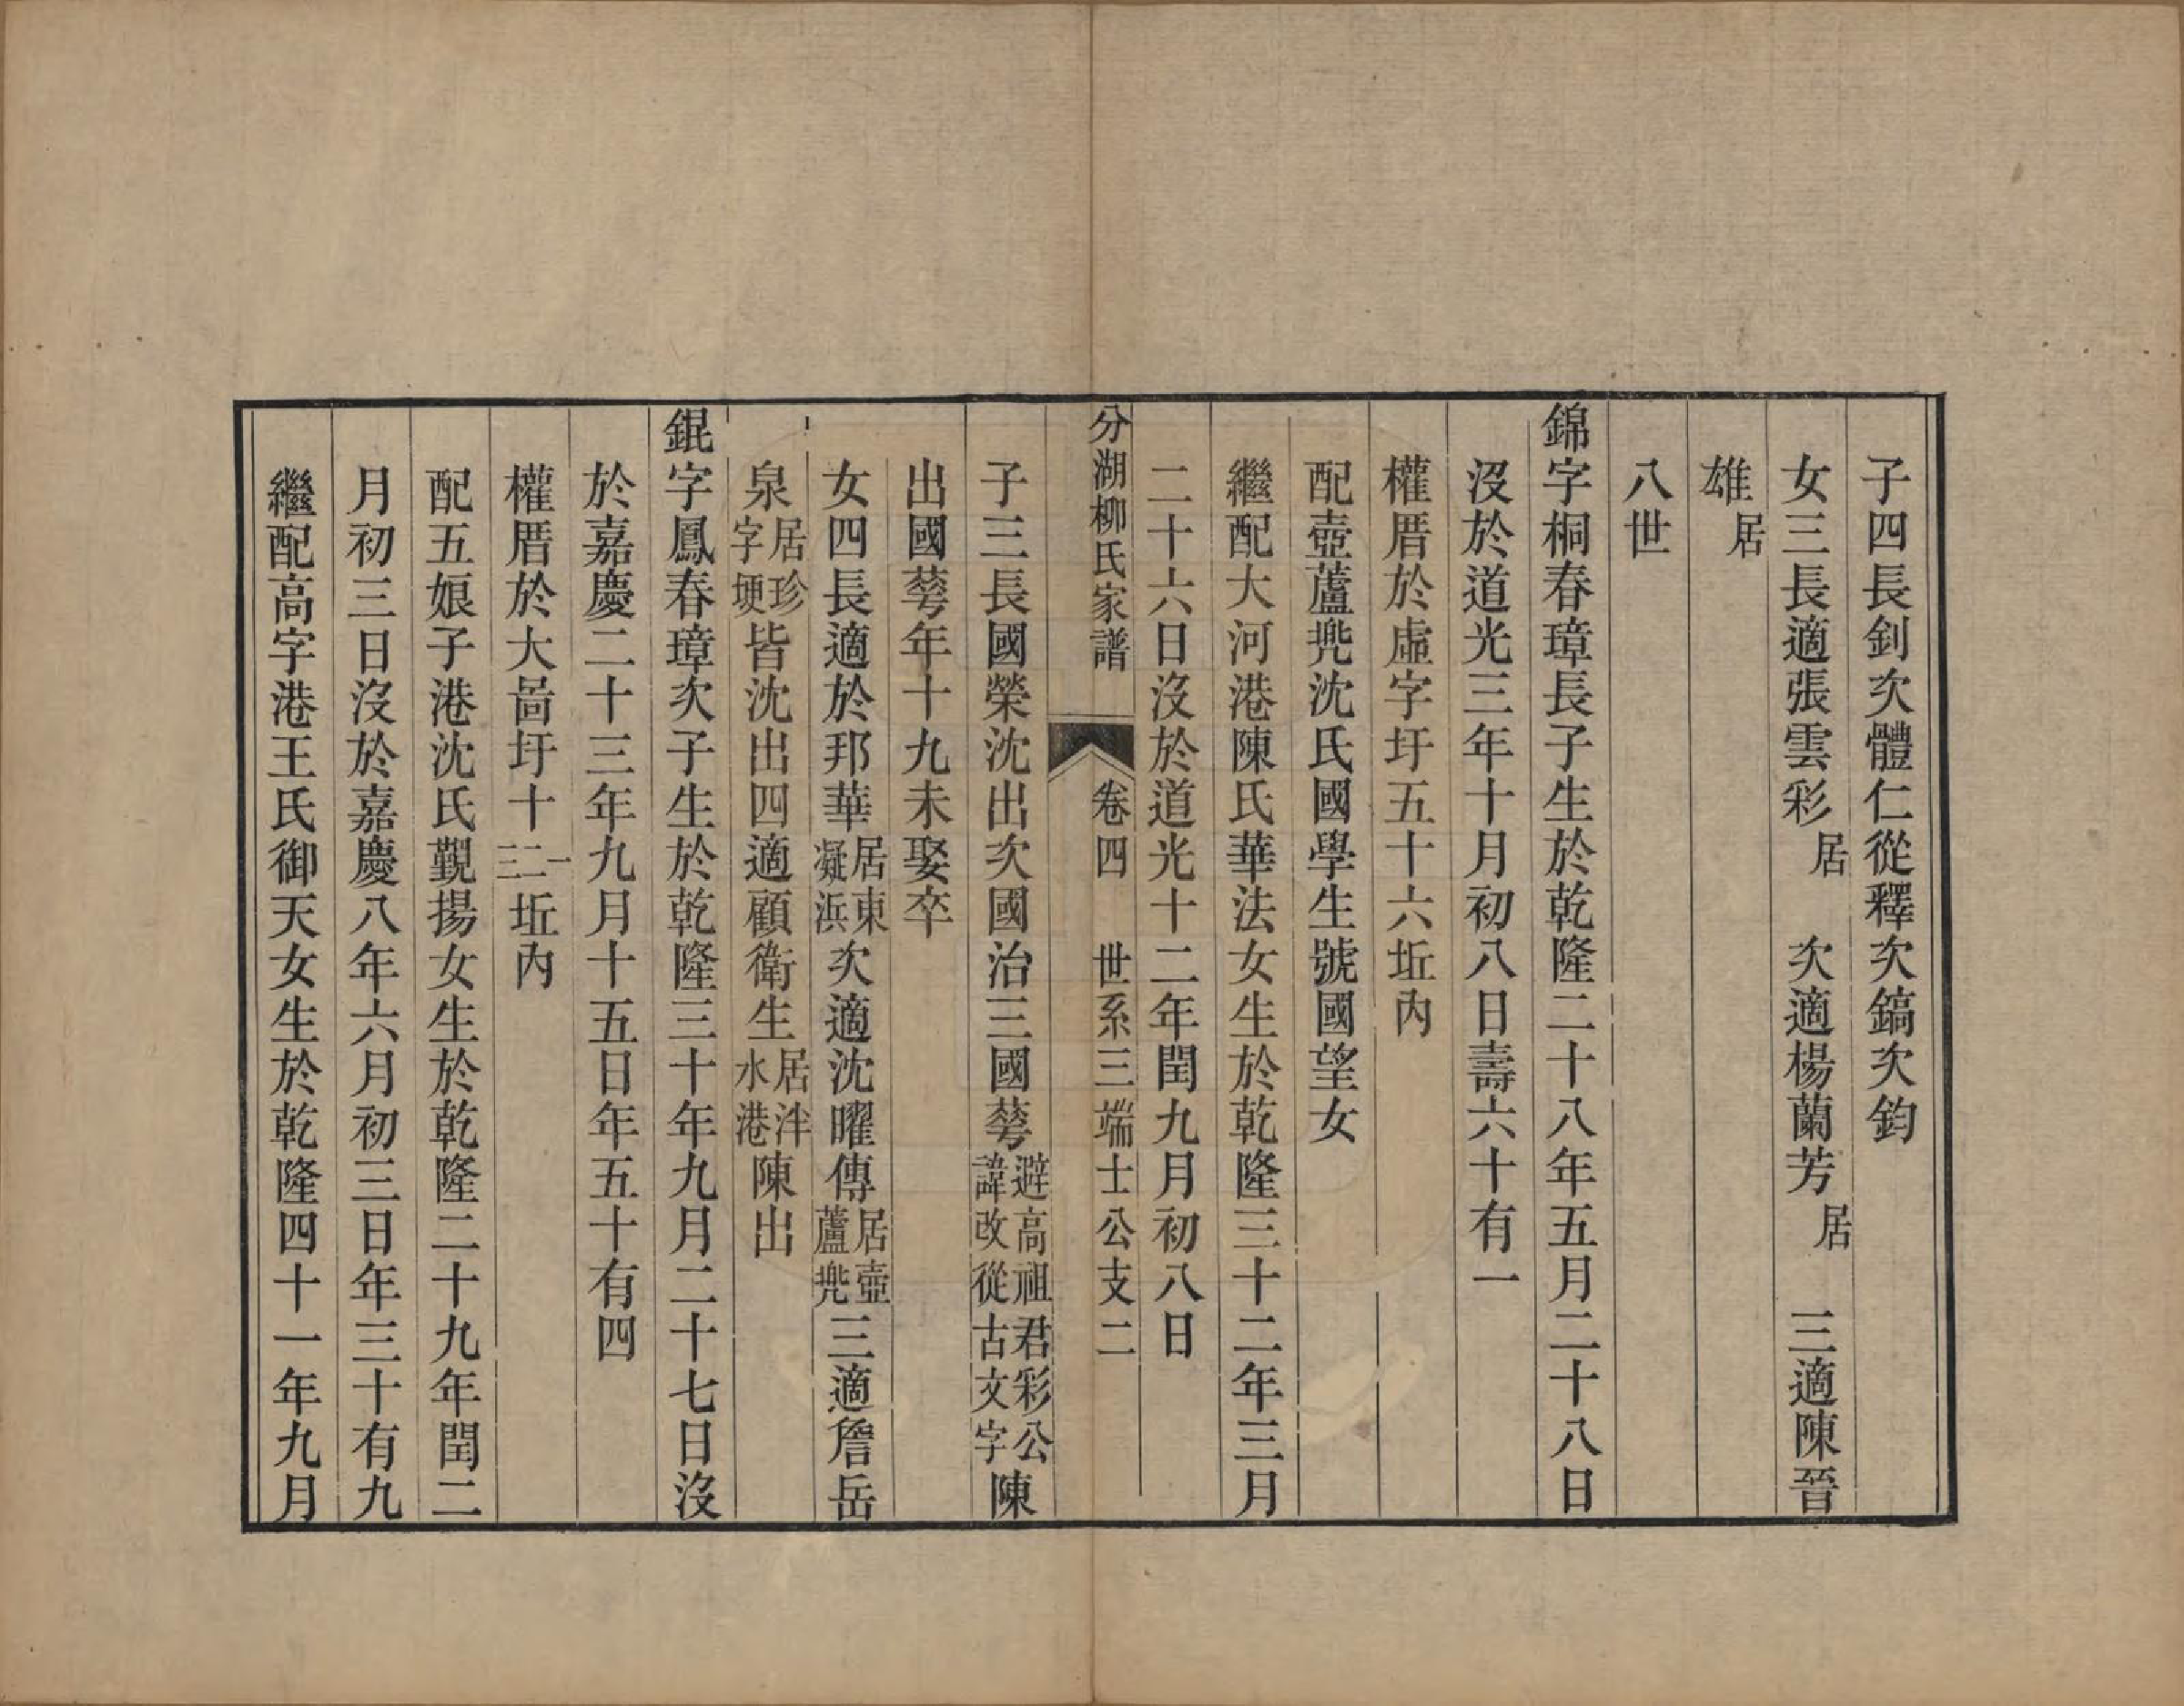 子四長釗次體仁從釋次鎬次鈞
女三長適張雲彩居　次適楊蘭芳居　三適陳晉
雄居
八世
錦字桐春璋長子生於乾隆二十八年五月二十八日
沒於道光三年十月初八日壽六十有一
權厝於虛字圩五十六坵內
配壺蘆兠沈氏國學生號國望女
繼配大河港陳氏華法女生於乾隆三十二年三月
二十六日沒於道光十二年閏九月初八日
分湖柳氏家譜　卷四　世系三端士公支二
子三長國榮沈出次國治三國蕚避高祖君彩公諱改從古文字陳
出國蕚年十九未娶卒
女四長適於邦華居東凝浜次適沈曜傳居壺蘆兠三適詹岳
泉居珍字埂皆沈出四適顧衛生居泮水港陳出
錕字鳳春璋次子生於乾隆三十年九月二十七日沒
於嘉慶二十三年九月十五日年五十有四
權厝於大啚圩十一二三坵內
配五娘子港沈氏覲揚女生於乾隆二十九年閏二
月初三日沒於嘉慶八年六月初三日年三十有九
繼配高字港王氏御天女生於乾隆四十一年九月